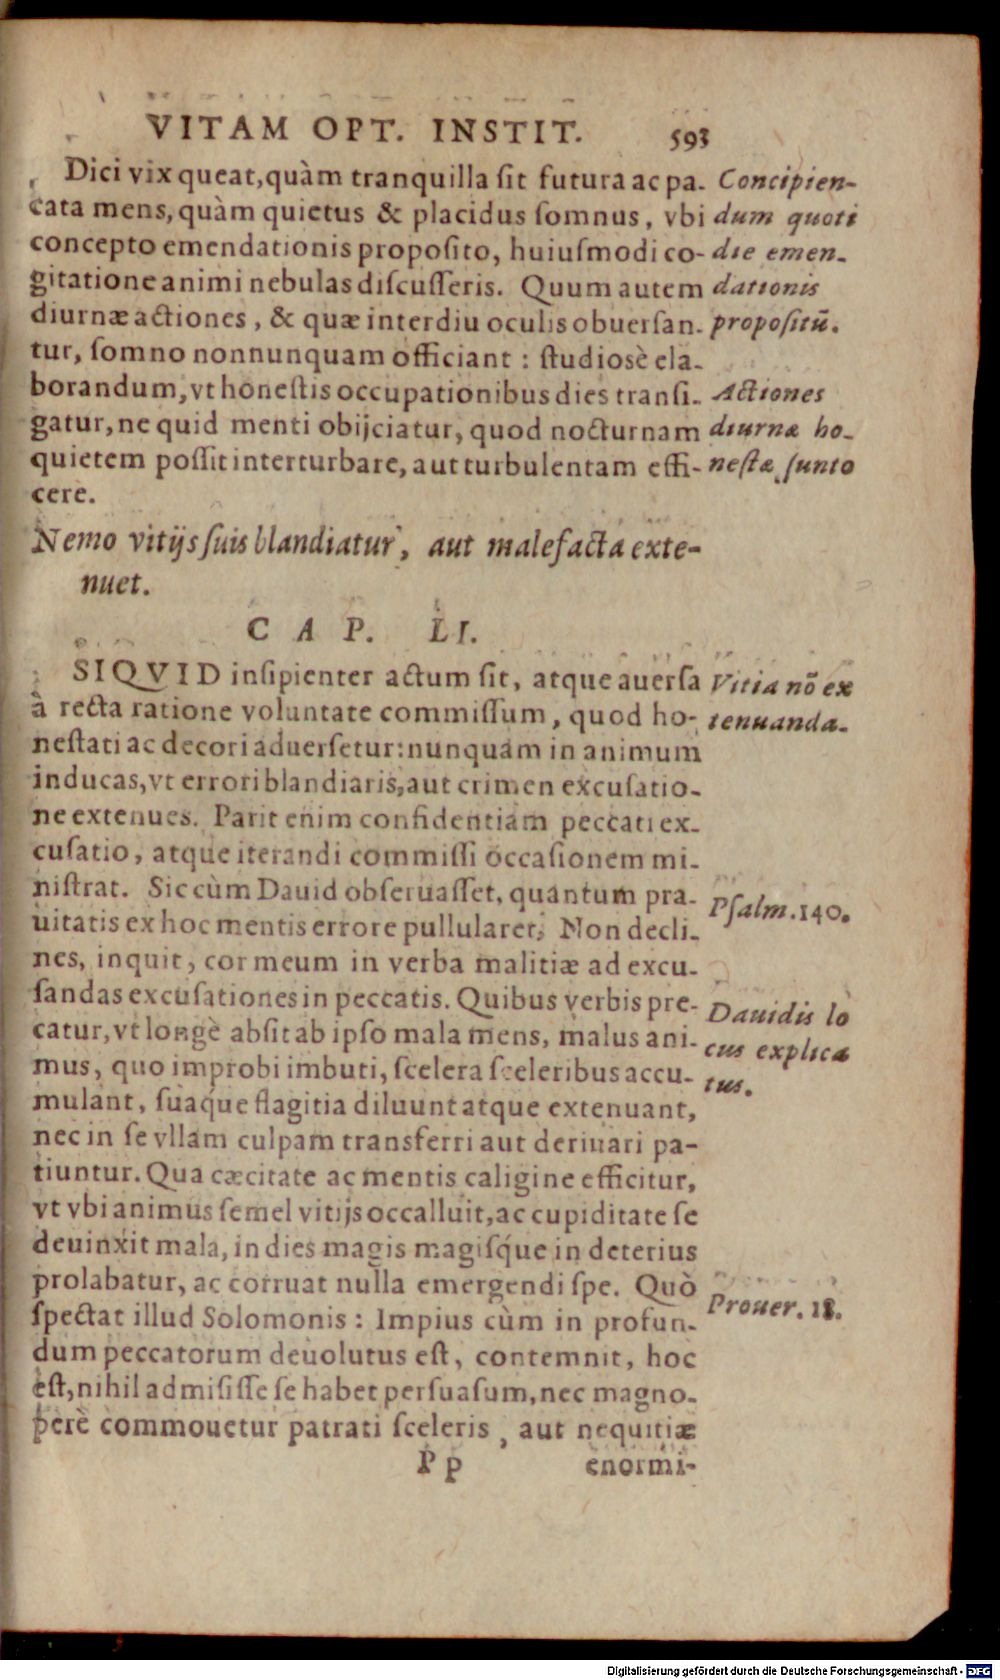 VITAM OPT. INSTIT. 593
Dici vix queat, quàm tranquilla ſit futura ac pa-
cata mens, quàm quietus & placidus ſomnus, vbi
concepto emendationis propoſito, huiuſmodi co-
gitatione animi nebulas diſcuſſeris. Quum autem
diurnæ actiones, & quæ interdiu oculis obuerſan-
tur, ſomno nonnunquam officiant : ſtudioſè ela-
borandum, vt honeſtis occupationibus dies tranſi-
gatur, ne quid menti obijciatur, quod nocturnam
quietem poſſit interturbare, aut turbulentam effi-
cere.
Concipien-
dum quoti
die emen-
dationis
propoſitū.
Actiones
diurnæ ho-
neſtæ ſunto
Nemo vitijs ſuis blandiatur, aut malefacta exte-
nuet.
CAP. LI.
SIQVID inſipienter actum ſit, atque auerſa
à recta ratione voluntate commiſſum, quod ho-
neſtati ac decori aduerſetur: nunquam in animum
inducas, vt errori blandiaris, aut crimen excuſatio-
ne extenues. Parit enim confidentiam peccati ex-
cuſatio, atque iterandi commiſſi occaſionem mi-
niſtrat. Sic cùm Dauid obſeruaſſet, quantum pra-
uitatis ex hoc mentis errore pullularet; Non decli-
nes, inquit, cor meum in verba malitiæ ad excu-
ſandas excuſationes in peccatis. Quibus verbis pre-
catur, vt longè abſit ab ipſo mala mens, malus ani-
mus, quo improbi imbuti, ſcelera ſceleribus accu-
mulant, ſuaq́ue flagitia diluunt atque extenuant,
nec in ſe vllam culpam transferri aut deriuari pa-
tiuntur. Qua cæcitate ac mentis caligine efficitur,
vt vbi animus ſemel vitijs occalluit, ac cupiditate ſe
deuinxit mala, in dies magis magiſq́ue in deterius
prolabatur, ac corruat nulla emergendi ſpe. Quò
ſpectat illud Solomonis : Impius cùm in profun-
dum peccatorum deuolutus eſt, contemnit, hoc
eſt, nihil admiſiſſe ſe habet perſuaſum, nec magno-
perè commouetur patrati ſceleris, aut nequitiæ
Vitia nõ ex
tenuanda.
Pſalm. 140.
Dauidis lo
cus explica
tus.
Prouer. 18.
Pp enormi-
Digitalisierung gefördert durch die Deutsche Forschungsgemeinschaft - DFG